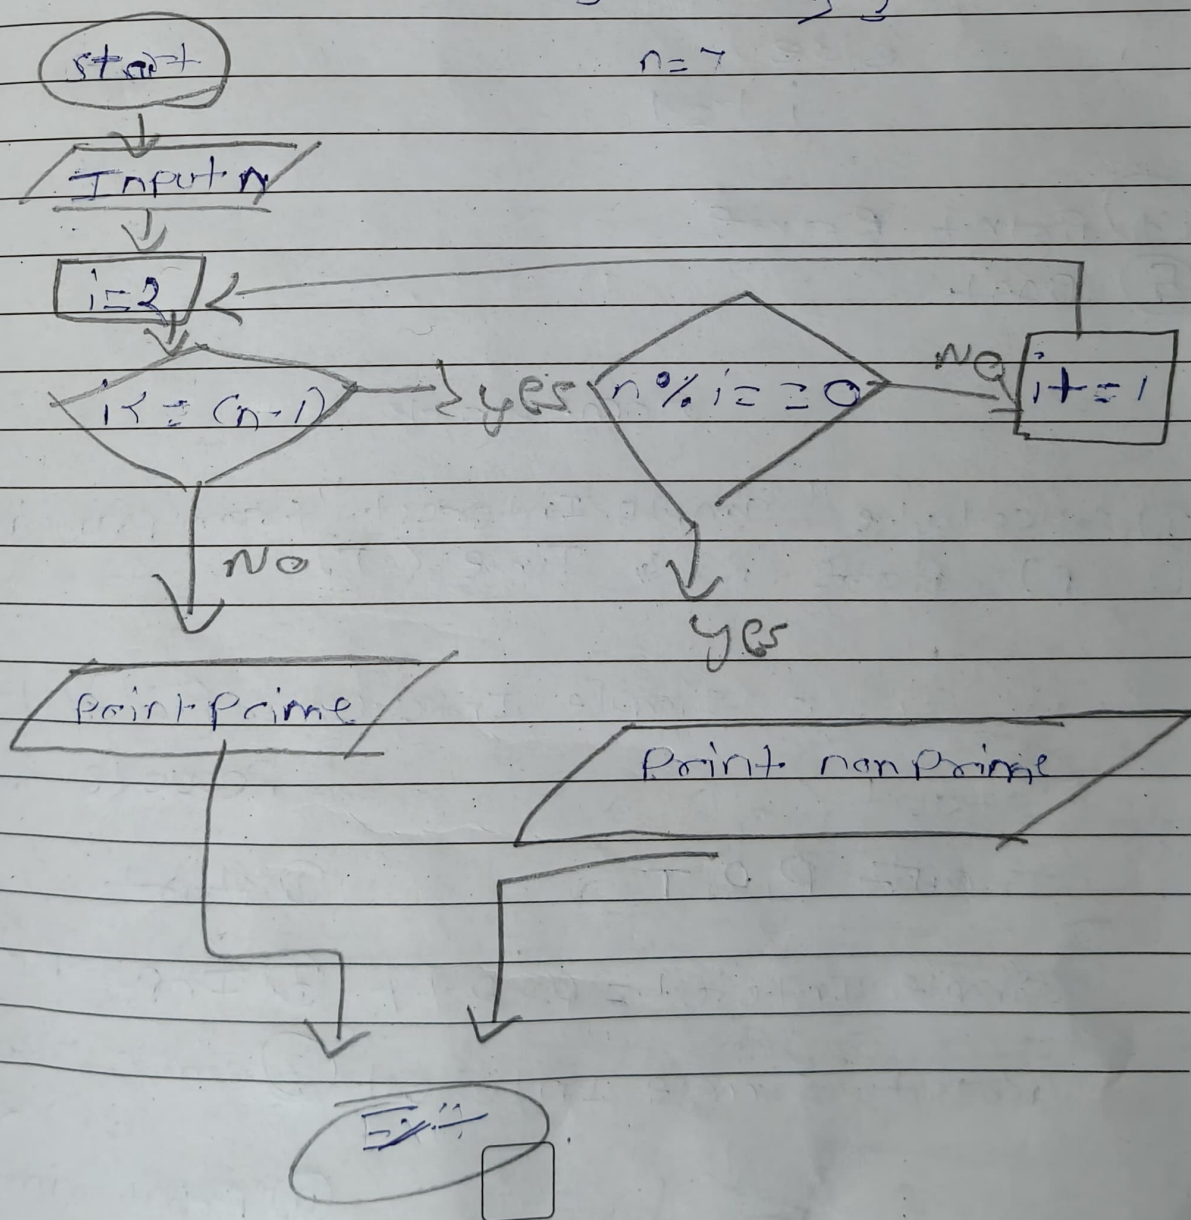 n=7
start
Input n
i=2
i<=(n-1)
yes
n%i==0
NO
i+=1
NO
yes
Print Prime
Print non Prime
Exit